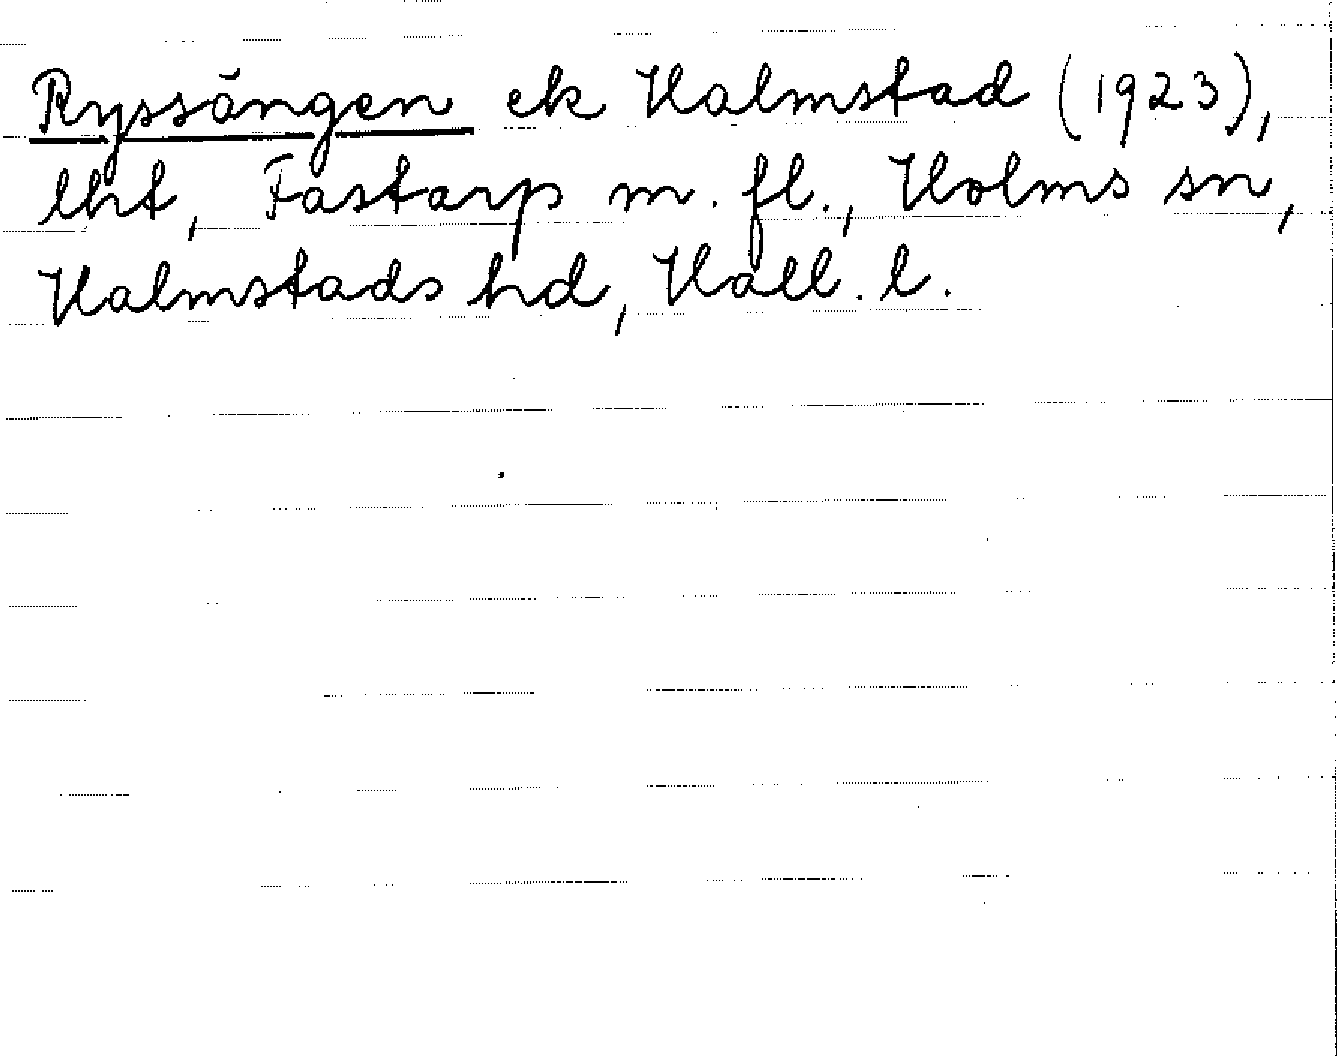 Ryssängen ek Halmstad (1923),
lht, Fastarp m. fl., Holms sn,
Halmstads hd, Hall. l.